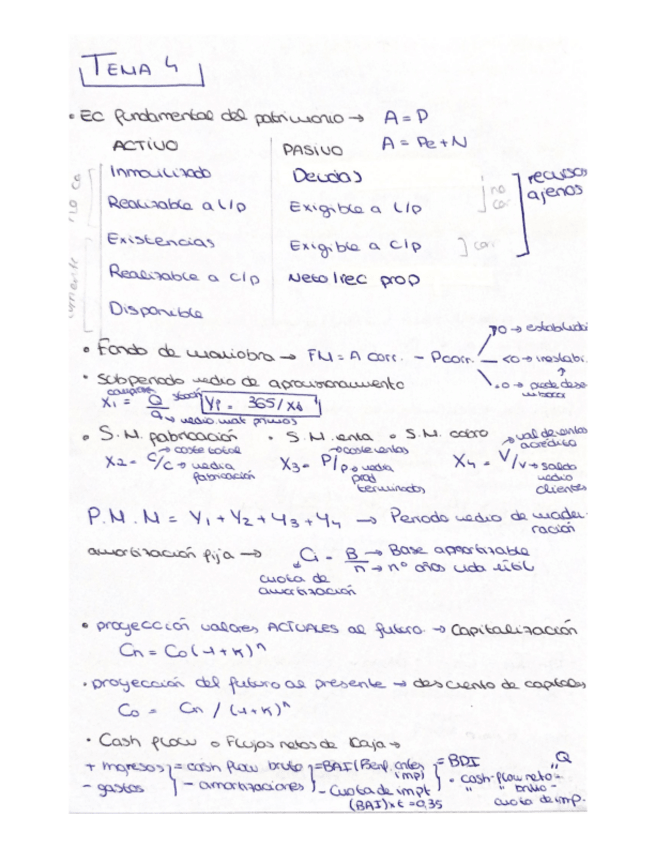 TEMA 4
• EC fundamental del patrimonio → A = P
ACTIVO PASIVO A = Pe + N
Inmovilizado Deudas no cor recursos ajenos
Realizable a L/p Exigible a L/p
Existencias Exigible a C/p ] cor
Realizable a C/p Neto/rec prop
Disponible
• Fondo de maniobra → FM = A corr. - P corr.
>0 → estabilidad
<0 → inestabi.
• Subperiodo medio de aprovisionamiento
X1 = Q/q → medio mat primas Y1 = 365/X1
compras stock
• S.M. fabricación • S.M. venta • S.M. cobro
X2 = C/c → media fabricación → coste total
X3 = P/p → media prod terminados → coste ventas
X4 = V/v → saldo medio clientes → val de ventas a crédito
P.M.M = Y1 + Y2 + Y3 + Y4 → Periodo medio de maduración
amortización fija → Ci = B/n → Base amortizable → nº años vida útil
cuota de amortización
• proyección valores ACTUALES al futuro → Capitalización
Cn = Co (1+K)^n
• proyección del futuro al presente → descuento de capitales
Co = Cn / (1+K)^n
• Cash flow o Flujos netos de Caja →
+ ingresos } = cash flow bruto } = BAI (Benf. antes imp) } = BDI Q
- gastos - amortizaciones - Cuota de impt • cash-flow neto =
(BAI) x t = 0,35 " " bruto - cuota de imp.